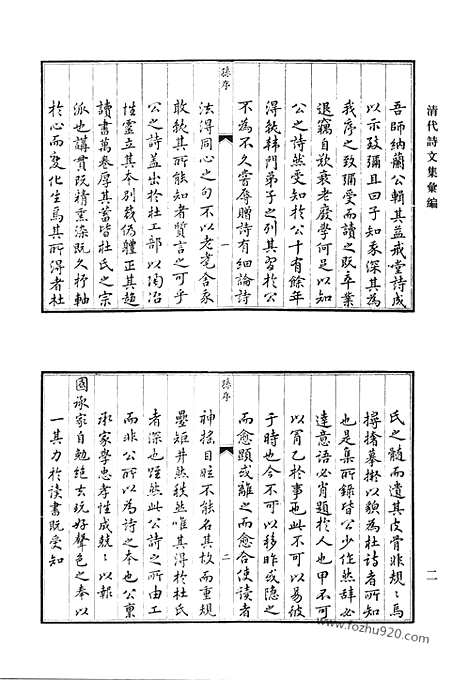 清代詩文集彙編
吾師納蘭公輯其益戒堂詩成
以示致彌且曰子知我深其為
我序之致彌受而讀之既卒業
退竊自歎衰老廢學何足以知
公之詩然受知於公十有餘年
得從韩門弟子之列其習於公
不為不久嘗辱贈詩有細論詩
孫序
一
法得同心之句不以老耄舍我
敢從其所能知者贊言之可乎
公之詩蓋出於杜工部以陶冶
性靈立其本別裁偽體正其趨
讀書萬卷厚其蓄皆杜氏之宗
派也講貫既精熏染既久杼軸
於心而變化生焉其所得者杜
氏之髓而遺其皮骨非規:焉
撏撦摹擬以貌為杜詩者所知
也是集所錄皆公少作然辭必
達意語必肖題於人也甲不可
以胥乙於事也此不可以易彼
于時也今不可以移昨或隱之
而愈顯或離之而愈合使讀者
孫序
二
神搖目眩不能名其故而重規
疊矩井然秩然唯其得於杜氏
者深也雖然此公詩之所由工
而非公所以為詩之本也公稟
承家學忠孝性成兢:以報
國承家自勉絕去玩好聲色之奉以
一其力於讀書既受知
二
www.fozhu920.com